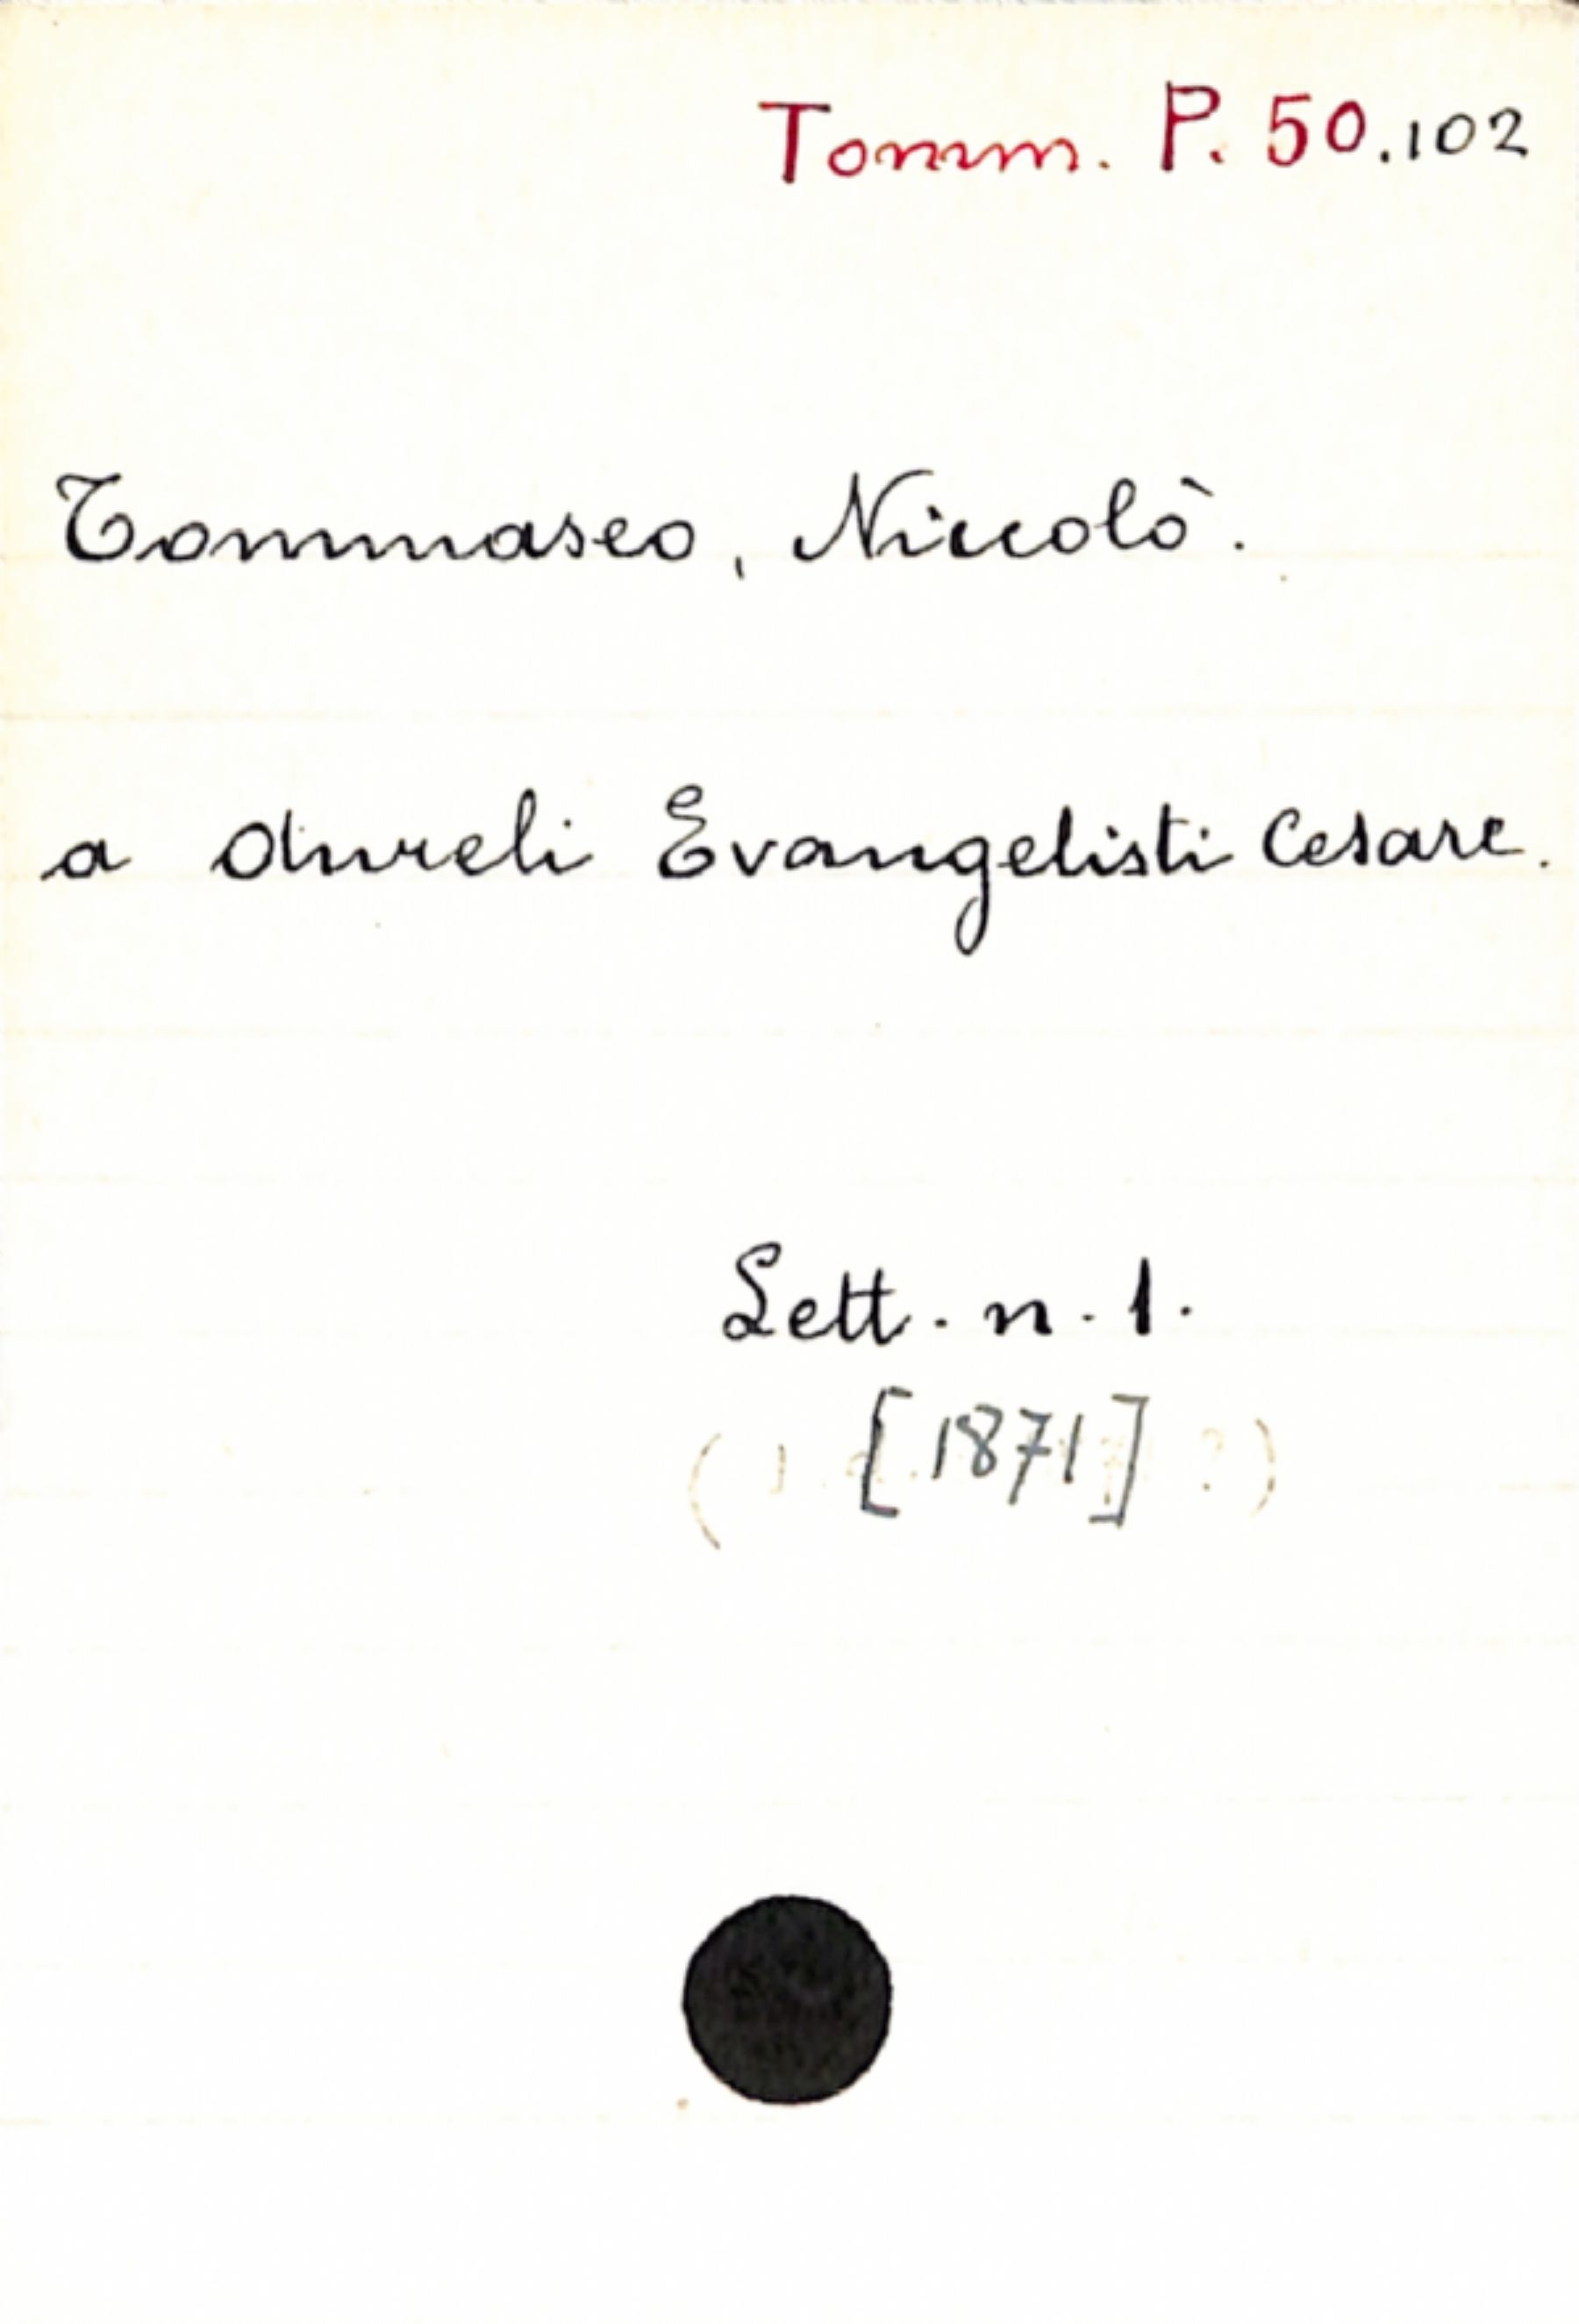 Tomm. P. 50.102
Tommaseo, Niccolò.
a Aureli Evangelisti Cesare.
Lett. n. 1.
[1871]